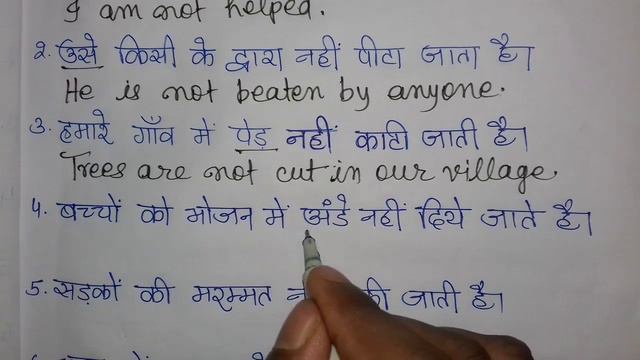 I am not helped.
2. उसे किसी के द्वारा नहीं पीटा जाता है।
He is not beaten by anyone.
3. हमारे गाँव में पेड़ नहीं काटी जाती है।
Trees are not cut in our village.
4. बच्चों को भोजन में अंडे नहीं दिये जाते है।
5. सड़कों की मरम्मत की जाती है।